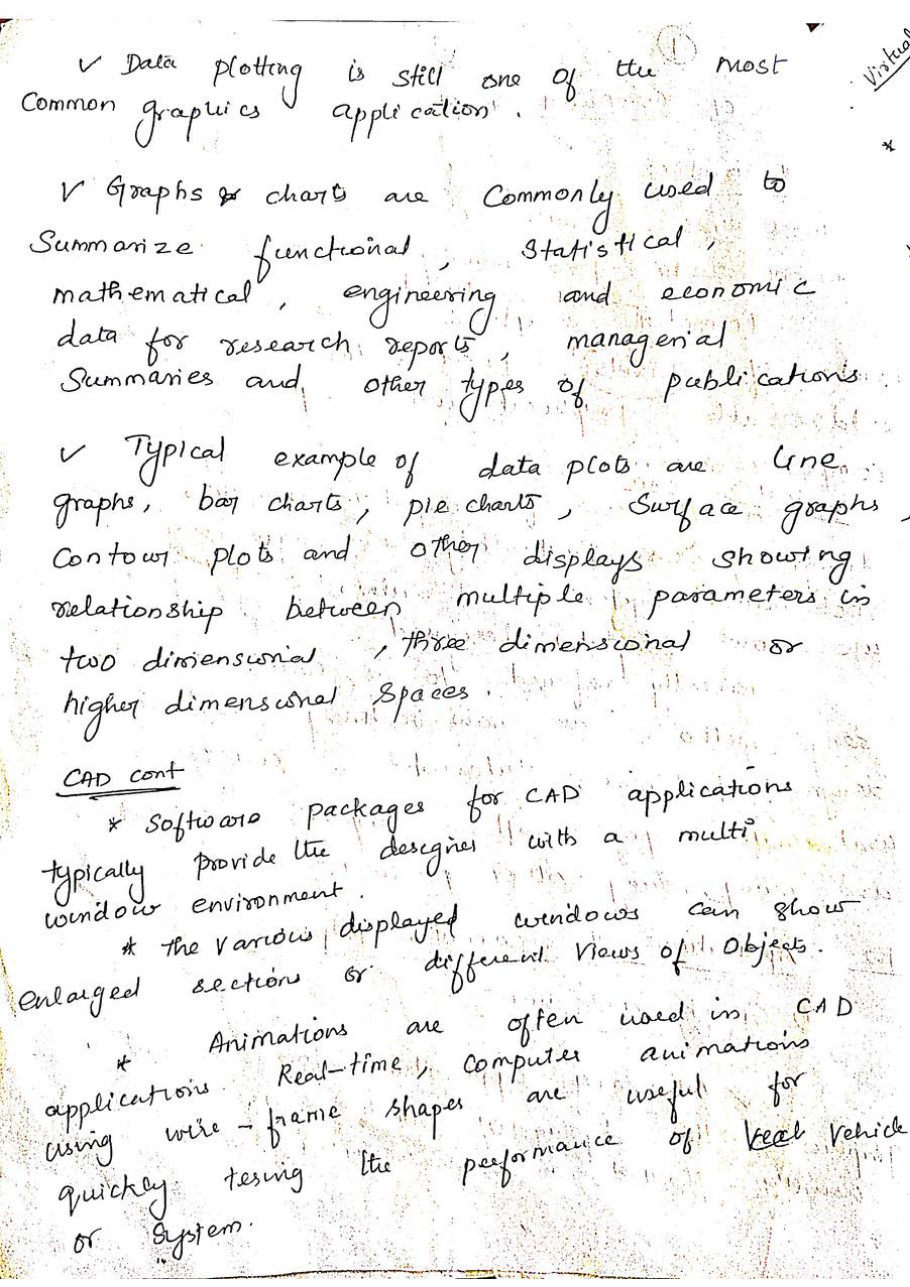 ①
Virtual
✓ Data plotting is still one of the most
Common graphics application.
*
✓ Graphs & charts are Commonly used to
Summarize functional, Statistical,
mathematical, engineering and economic
data for research reports, managerial
Summaries and other types of publications
✓ Typical example of data plots are line
graphs, bar charts, pie charts, Surface graphs,
Contour plots and other displays showing
relationship between multiple parameters in
two dimensional, three dimensional or
higher dimensional Spaces.
CAD cont
* Software packages for CAD applications
typically provide the designer with a multi
window environment.
* the various displayed windows can show
enlarged sections or different views of Objects.
* Animations are often used in CAD
applications. Real-time, Computer animations
using wire-frame shapes are useful for
quickly tesing the performance of Vehicle
or System.